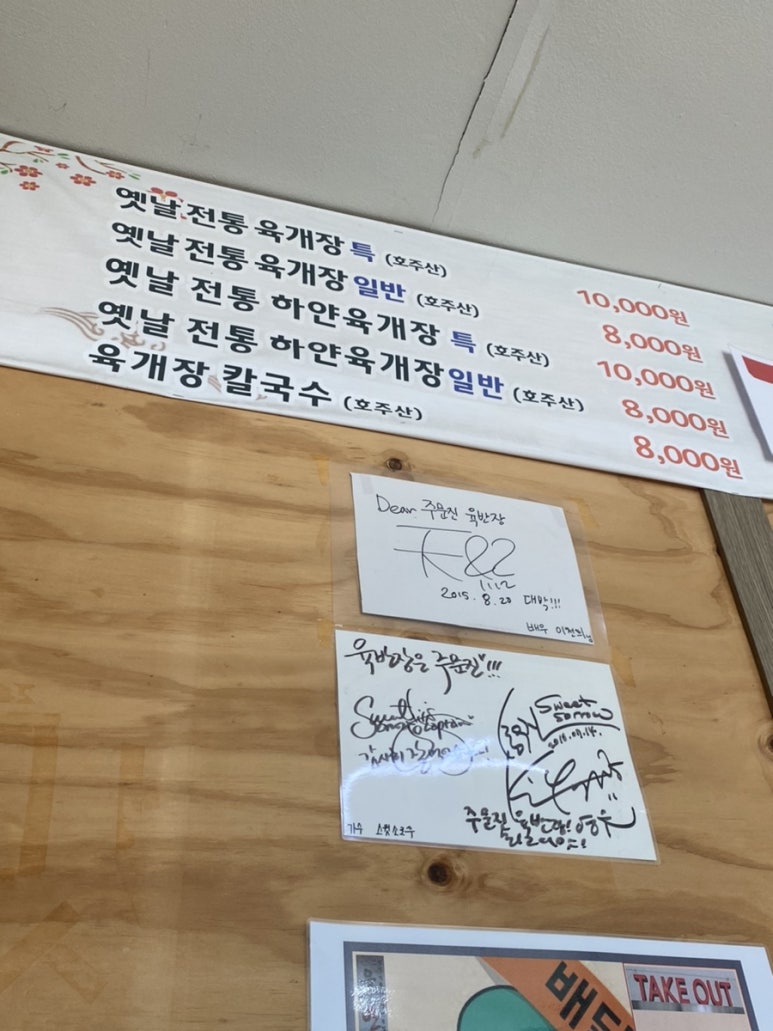 옛날 전통 육개장 특 (호주산) 10,000원
옛날 전통 육개장 일반 (호주산) 8,000원
옛날 전통 하얀육개장 특 (호주산) 10,000원
옛날 전통 하얀육개장일반 (호주산) 8,000원
육개장 칼국수 (호주산) 8,000원
Dear 주문진 육반장
2015. 8. 20 대박!!!
배우 이천희님
육반장은 주문진!!!
Sweet Sorrow
가수 스윗소로우
주문진 육반장!
TAKE OUT